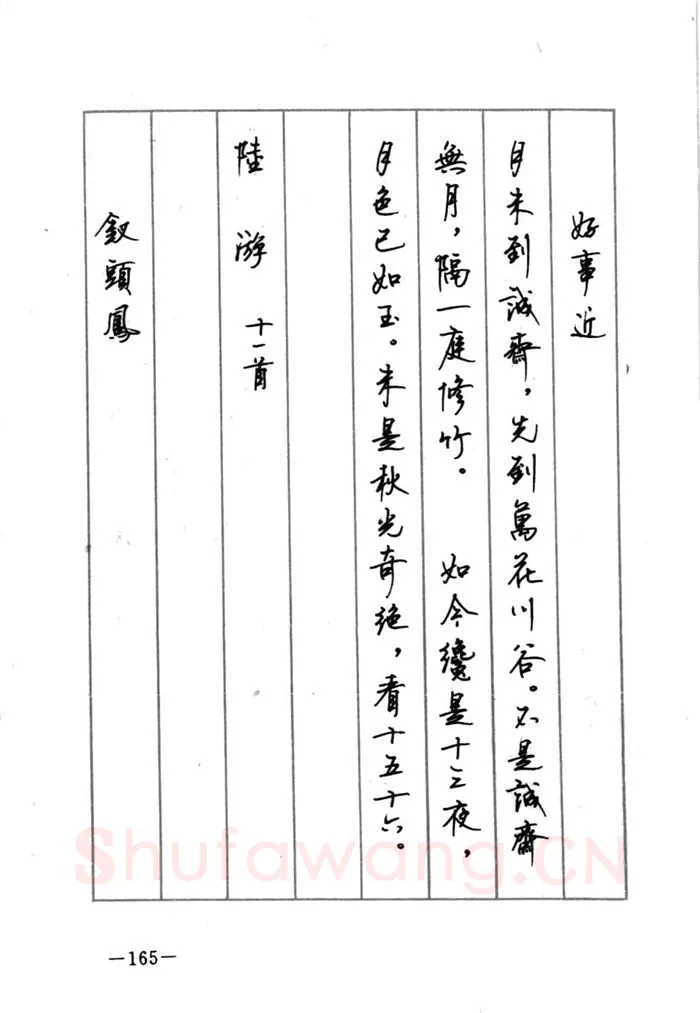 好事近
月未到誠齋，先到萬花川谷。不是誠齋
無月，隔一庭修竹。　如今纔是十三夜，
月色已如玉。未是秋光奇絶，看十五十六。
陸　游　十一首
釵頭鳳
Shufawang.CN
—165—